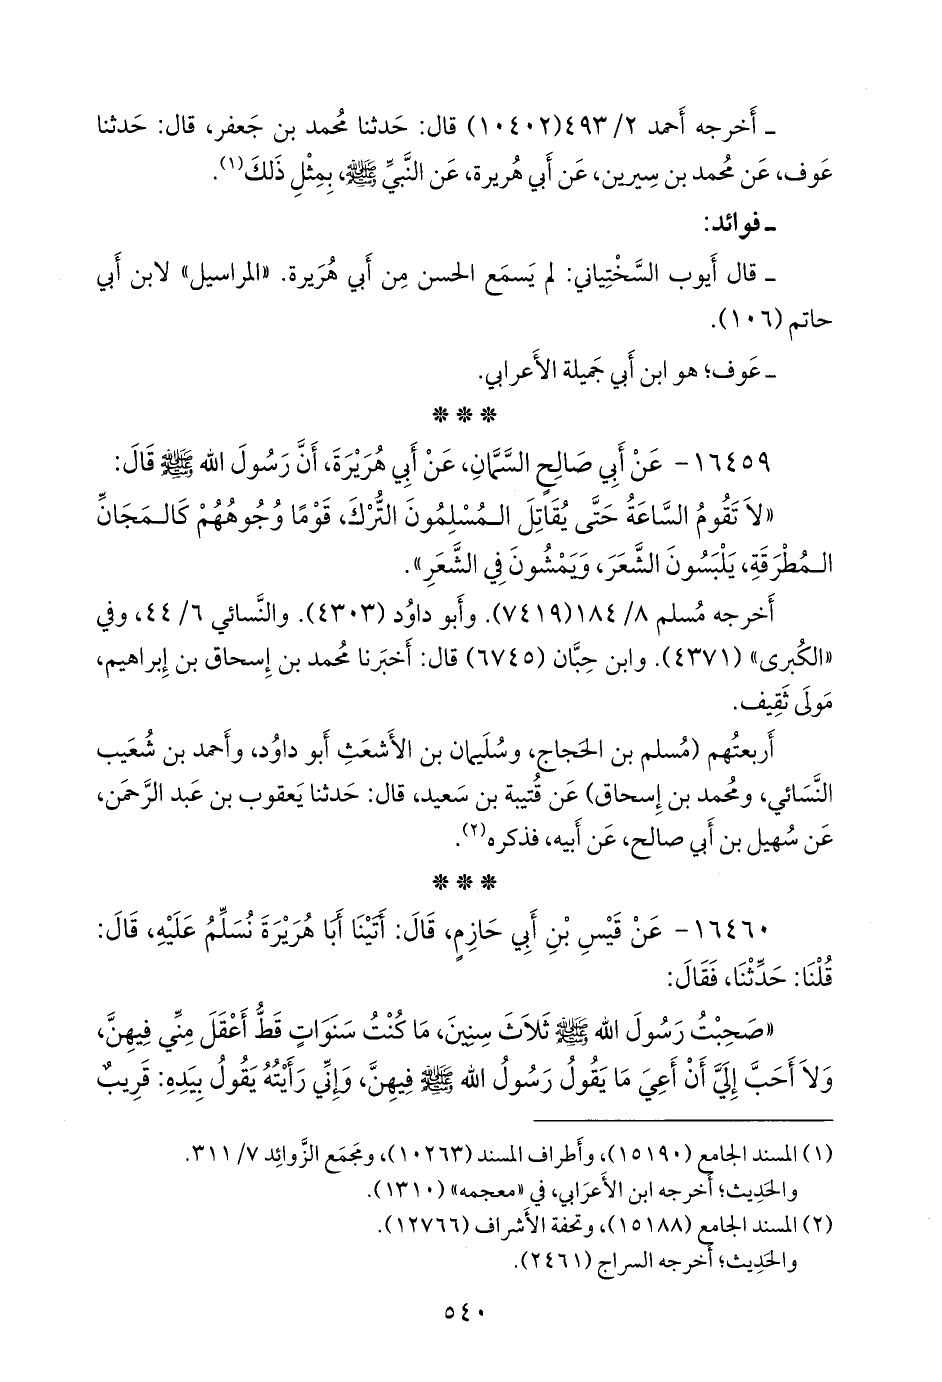 ـ أَخرجه أَحمد ٢/ ٤٩٣(١٠٤٠٢) قال: حَدثنا مُحمد بن جَعفر، قال: حَدثنا
عَوف، عَن مُحمد بن سِيرين، عَن أَبي هُريرة، عَن النَّبيِّ ﷺ، بِمِثْلِ ذَلكَ(١).
ـ فوائد:
ـ قال أَيوب السَّخْتِياني: لم يَسمَع الحسن مِن أَبي هُرَيرة. «المراسيل» لابن أَبي
حاتم (١٠٦).
ـ عَوف؛ هو ابن أَبي جَميلة الأَعرابي.
* * *
١٦٤٥٩- عَنْ أَبِي صَالِحٍ السَّمَّانِ، عَنْ أَبِي هُرَيْرَةَ، أَنَّ رَسُولَ الله ﷺ قَالَ:
«لاَ تَقُومُ السَّاعَةُ حَتَّى يُقَاتِلَ الـمُسْلِمُونَ التُّرْكَ، قَوْمًا وُجُوهُهُمْ كَالـمَجَانِّ
الـمُطْرَقَةِ، يَلْبَسُونَ الشَّعَرَ، وَيَمْشُونَ فِي الشَّعَرِ».
أَخرجه مُسلم ٨/ ١٨٤(٧٤١٩). وأَبو داوُد (٤٣٠٣). والنَّسائي ٦/ ٤٤، وفي
«الكُبرى» (٤٣٧١). وابن حِبَّان (٦٧٤٥) قال: أَخبَرنا مُحمد بن إِسحاق بن إِبراهيم،
مَولَى ثَقِيف.
أَربعتُهم (مُسلم بن الحَجاج، وسُلَيمان بن الأَشعَثِ أَبو داوُد، وأَحمد بن شُعَيب
النَّسَائي، ومُحمد بن إِسحاق) عَن قُتيبة بن سَعيد، قال: حَدثنا يَعقوب بن عَبد الرَّحمَن،
عَن سُهيل بن أَبي صالح، عَن أَبيه، فذكره(٢).
* * *
١٦٤٦٠- عَنْ قَيْسِ بْنِ أَبِي حَازِمٍ، قَالَ: أَتَيْنَا أَبَا هُرَيْرَةَ نُسَلِّمُ عَلَيْهِ، قَالَ:
قُلْنَا: حَدِّثْنَا، فَقَالَ:
«صَحِبْتُ رَسُولَ الله ﷺ ثَلاَثَ سِنِينَ، مَا كُنْتُ سَنَوَاتٍ قَطُّ أَعْقَلَ مِنِّي فِيهِنَّ،
وَلاَ أَحَبَّ إِلَيَّ أَنْ أَعِيَ مَا يَقُولُ رَسُولُ الله ﷺ فِيهِنَّ، وَإِنِّي رَأَيْتُهُ يَقُولُ بِيَدِهِ: قَرِيبٌ
(١) المسند الجامع (١٥١٩٠)، وأَطراف المسند (١٠٢٦٣)، ومَجمَع الزَّوائد ٧/ ٣١١.
والحَدِيث؛ أَخرجه ابن الأَعرَابي، في «معجمه» (١٣١٠).
(٢) المسند الجامع (١٥١٨٨)، وتحفة الأَشراف (١٢٧٦٦).
والحَدِيث؛ أَخرجه السراج (٢٤٦١).
٥٤٠